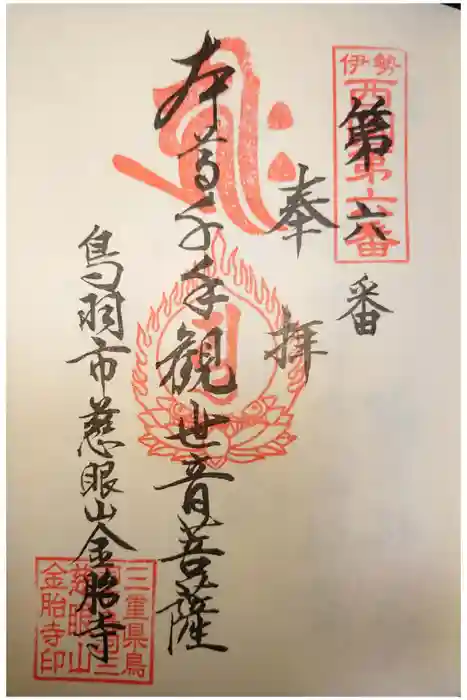 伊勢
西国第六番
第六番
奉拝
本尊千手観世音菩薩
鳥羽市慈眼山金胎寺
三重県鳥
慈眼山
金胎寺印